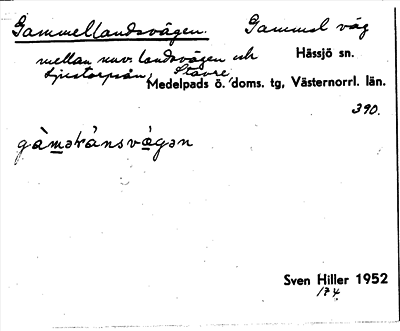 Gammellandsvägen. Gammal väg
mellan nuv. landsvägen och Hässjö sn.
Ljustorpsån, Stavre,
Medelpads ö. doms. tg, Västernorrl. län.
390.
gàməlánsvägən
Sven Hiller 1952
174